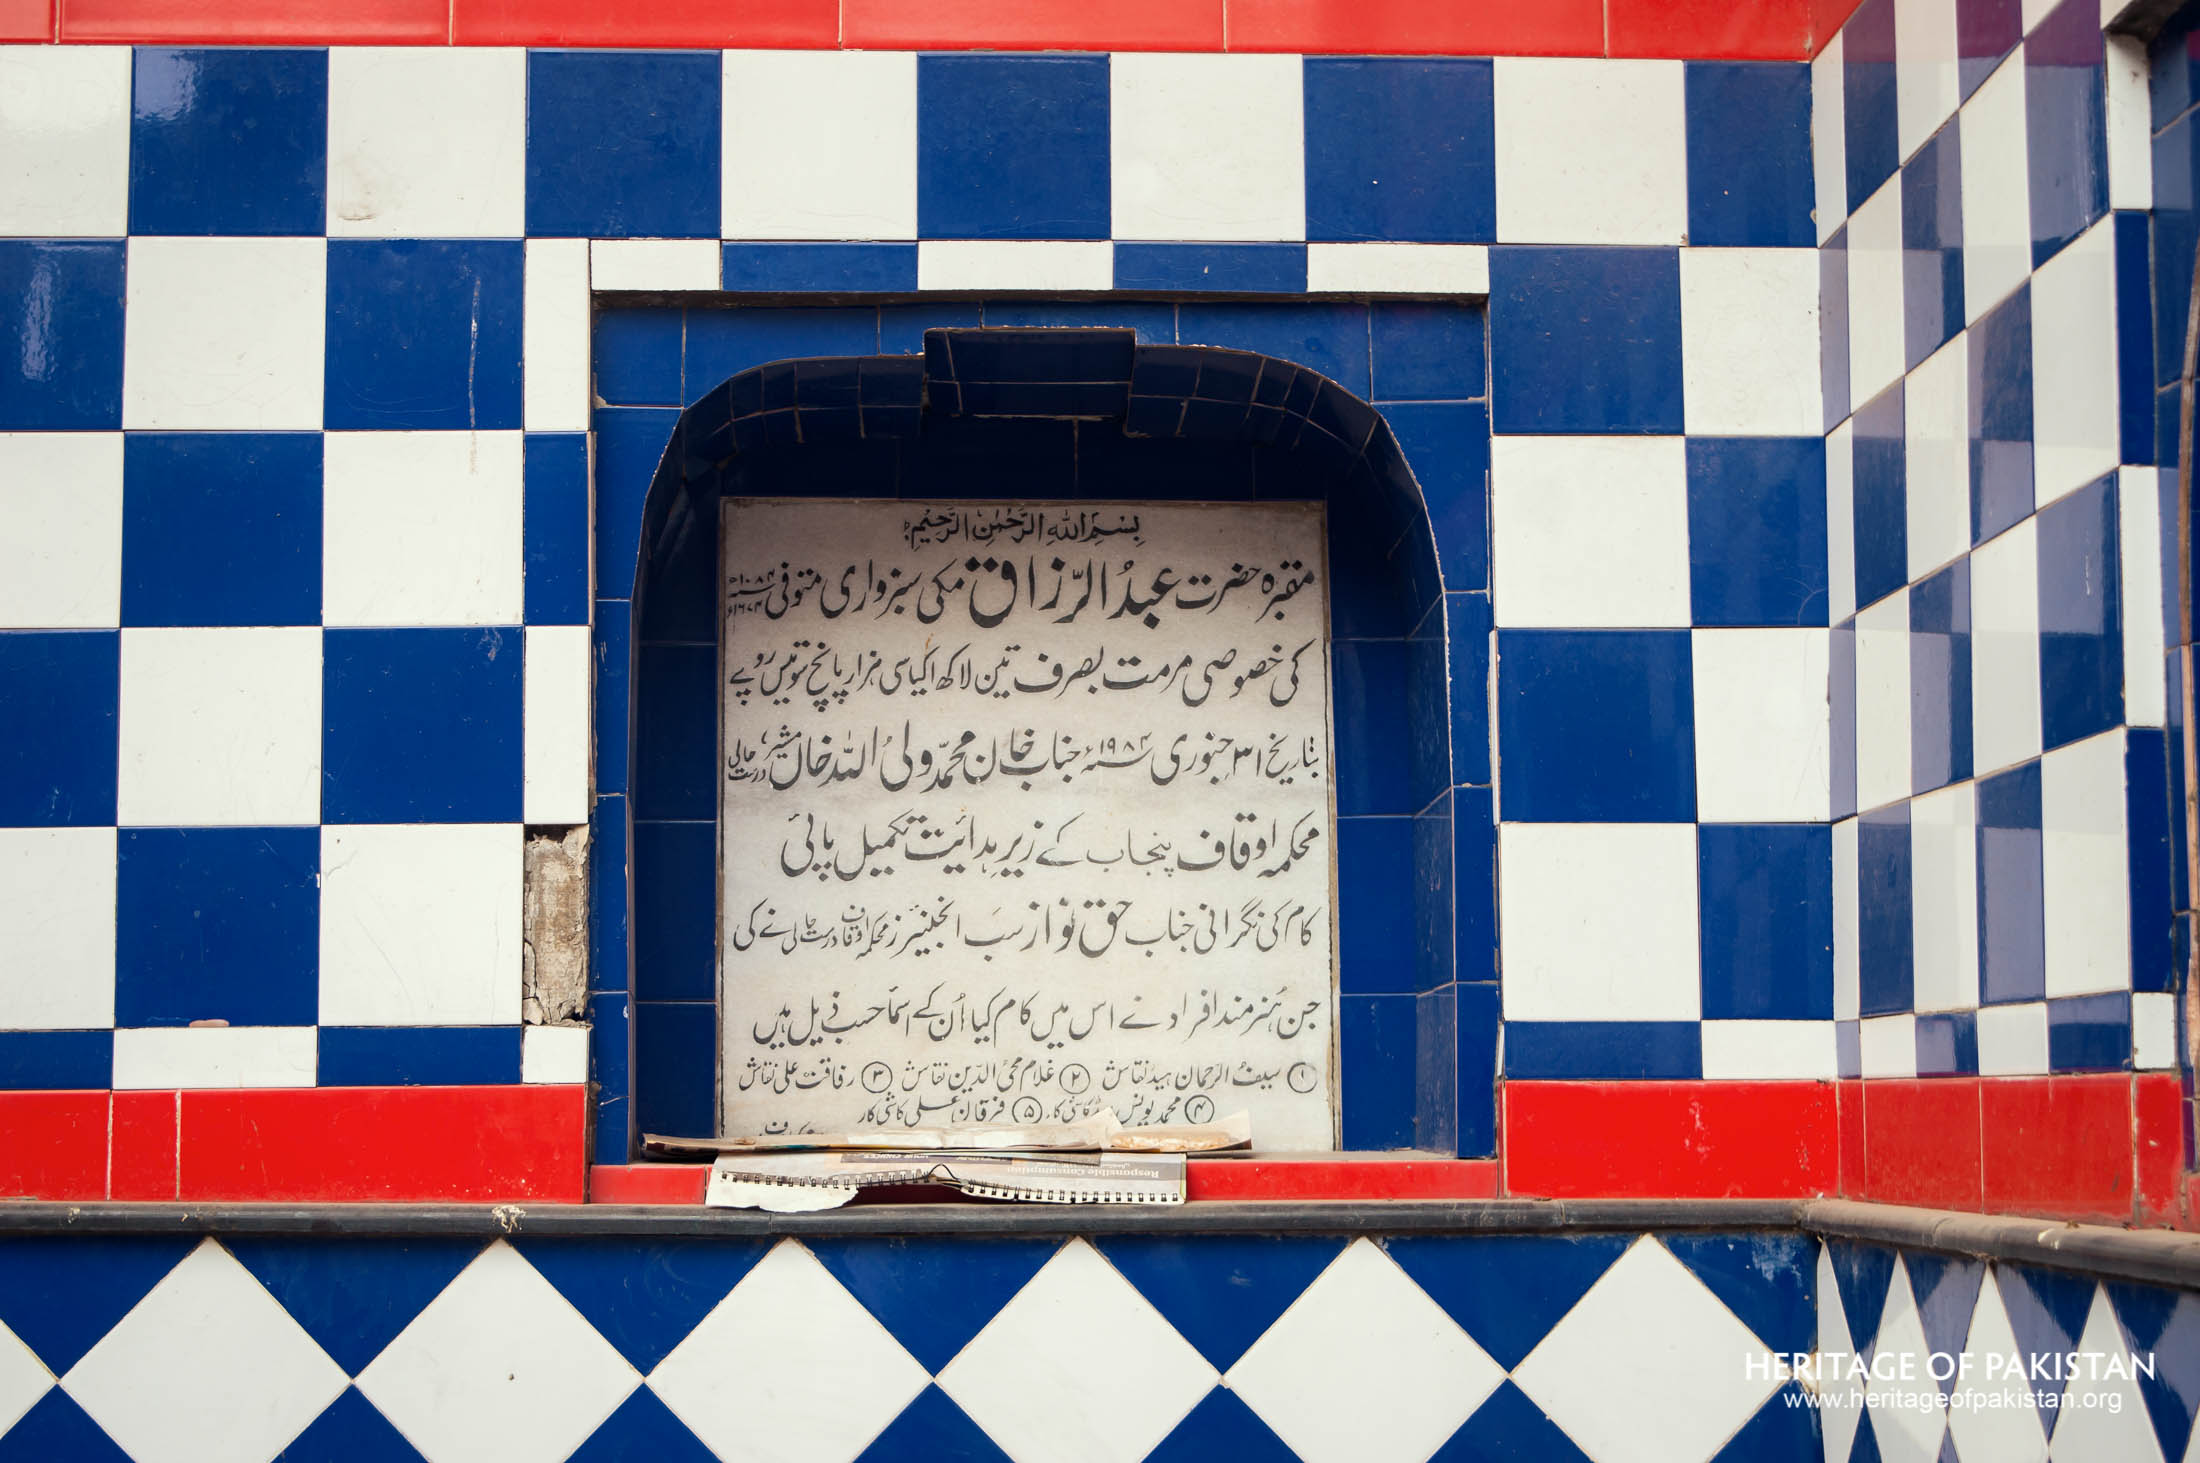 بِسْمِ اللهِ الرَّحْمٰنِ الرَّحِيْمِ
مقبرہ حضرت عبدُ الرّزاق مکی سبزواری متوفی ۱۰۸۴ھ ۱۶۷۴ء
کی خصوصی مرمت بصرف تین لاکھ اکیاسی ہزار پانچ سو تیس روپے
بتاریخ ۳۱ جنوری ۱۹۸۴ء جناب خان محمّد ولیُ اللہ خان مشیر
محکمہ اوقاف پنجاب کے زیرِ ہدائیت تکمیل پائی
کام کی نگرانی جناب حق نواز سَب انجنیئرز محکمہ اوقاف نے کی
جن ہُنر مند افراد نے اس میں کام کیا اُن کے اسمأ حسب ذیل ہیں
۱ سیفُ الرحمان ہیڈ نقاش ۲ غلام محیُ الدّین نقاش ۳ رفاقت علی نقاش
۴ محمد یونس ۵ فرقان علی کاشی کار
Responsible Consumption
HERITAGE OF PAKISTAN
www.heritageofpakistan.org